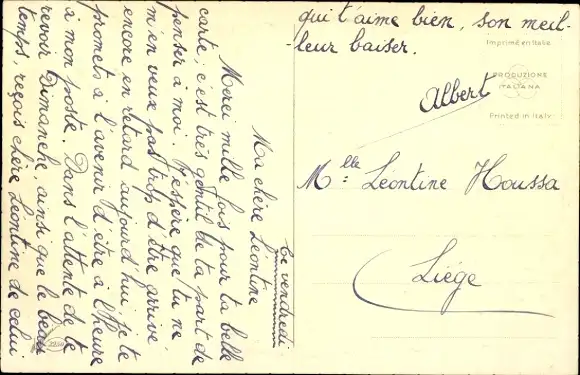 Ce vendredi
Ma chère Léontine
Merci mille fois pour ta belle
carte, c'est très gentil de ta part de
penser à moi. J'espère que tu ne
m'en veux pas trop d'être arrivé
encore en retard aujourd'hui, je te
promets à l'avenir d'être à l'heure
à mon poste. Dans l'attente de te
revoir Dimanche, ainsi que le beau
temps, reçois chère Léontine de celui
qui t'aime bien, son meil-
-leur baiser.
Albert
Imprimé en Italie
PRODUZIONE
ITALIANA
Printed in Italy
Mlle Léontine Houssa
Liège